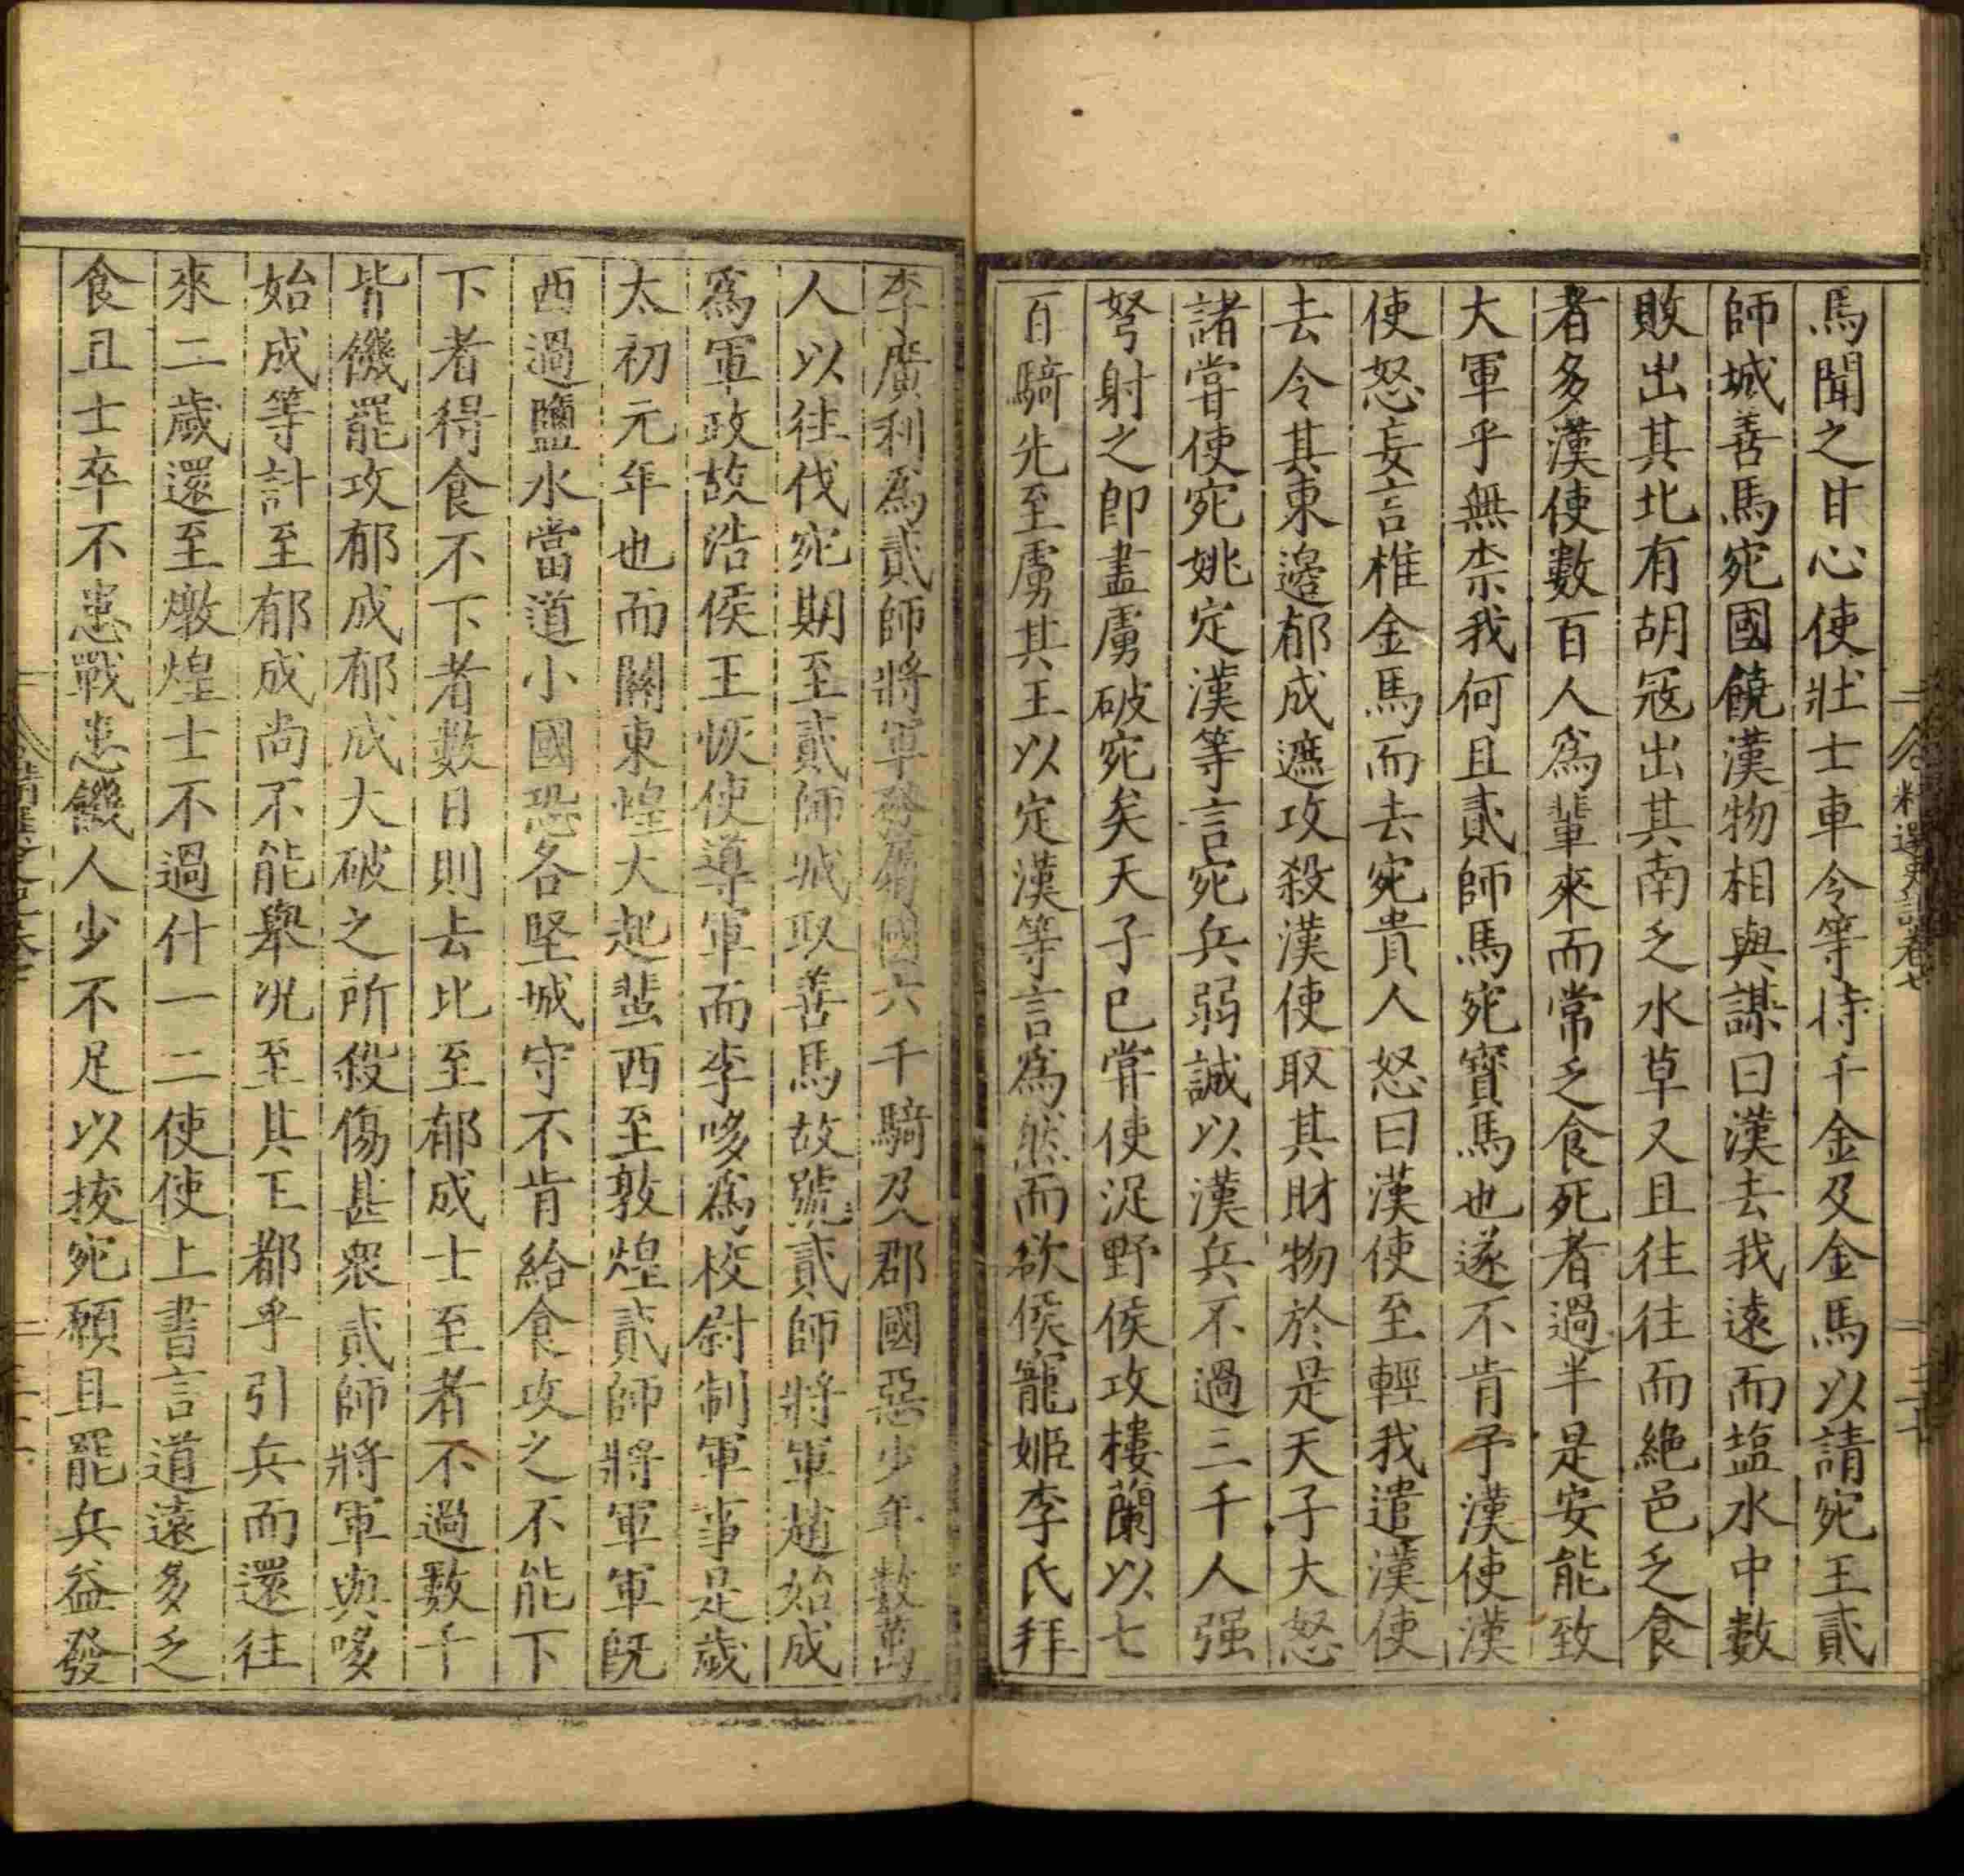 精選史記卷七
馬聞之甘心使壯士車令等持千金及金馬以請宛王貳
師城善馬宛國饒漢物相與謀曰漢去我遠而塩水中數
敗出其北有胡寇出其南乏水草又且往往而絶邑乏食
者多漢使數百人爲輩來而常乏食死者過半是安能致
大軍乎無柰我何且貳師馬宛寳馬也遂不肯予漢使漢
使怒妄言椎金馬而去宛貴人怒曰漢使至輕我遣漢使
去令其東邊郁成遮攻殺漢使取其財物於是天子大怒
諸甞使宛姚定漢等言宛兵弱誠以漢兵不過三千人强
弩射之卽盡虜破宛矣天子巳甞使浞野侯攻樓蘭以七
百騎先至虜其王以定漢等言爲然而欲侯寵姬李氏拜
李廣利爲貳師將軍發屬國六千騎及郡國惡少年數萬
人以往伐宛期至貳師城取善馬故號貳師將軍趙始成
爲軍政故浩侯王恢使導軍而李哆爲校尉制軍事是歲
太初元年也而關東蝗大起蜚西至敦煌貳師將軍軍旣
西過鹽水當道小國恐各堅城守不肯給食攻之不能下
下者得食不下者數日則去比至郁成士至者不過數千
皆饑罷攻郁成郁成大破之所殺傷甚衆貳師將軍與哆
始成等計至郁成尚不能舉况至其王都乎引兵而還往
來二歲還至燉煌士不過什一二使使上書言道遠多乏
食且士卒不患戰患饑人少不足以抜宛願且罷兵益發